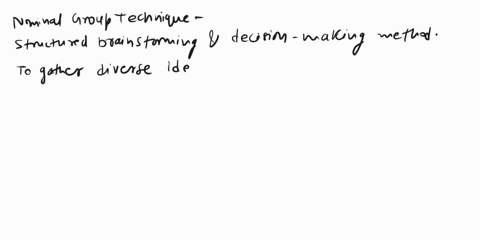 Nominal Group Technique -
Structured brainstorming & decision-making method.
To gather diverse Ide